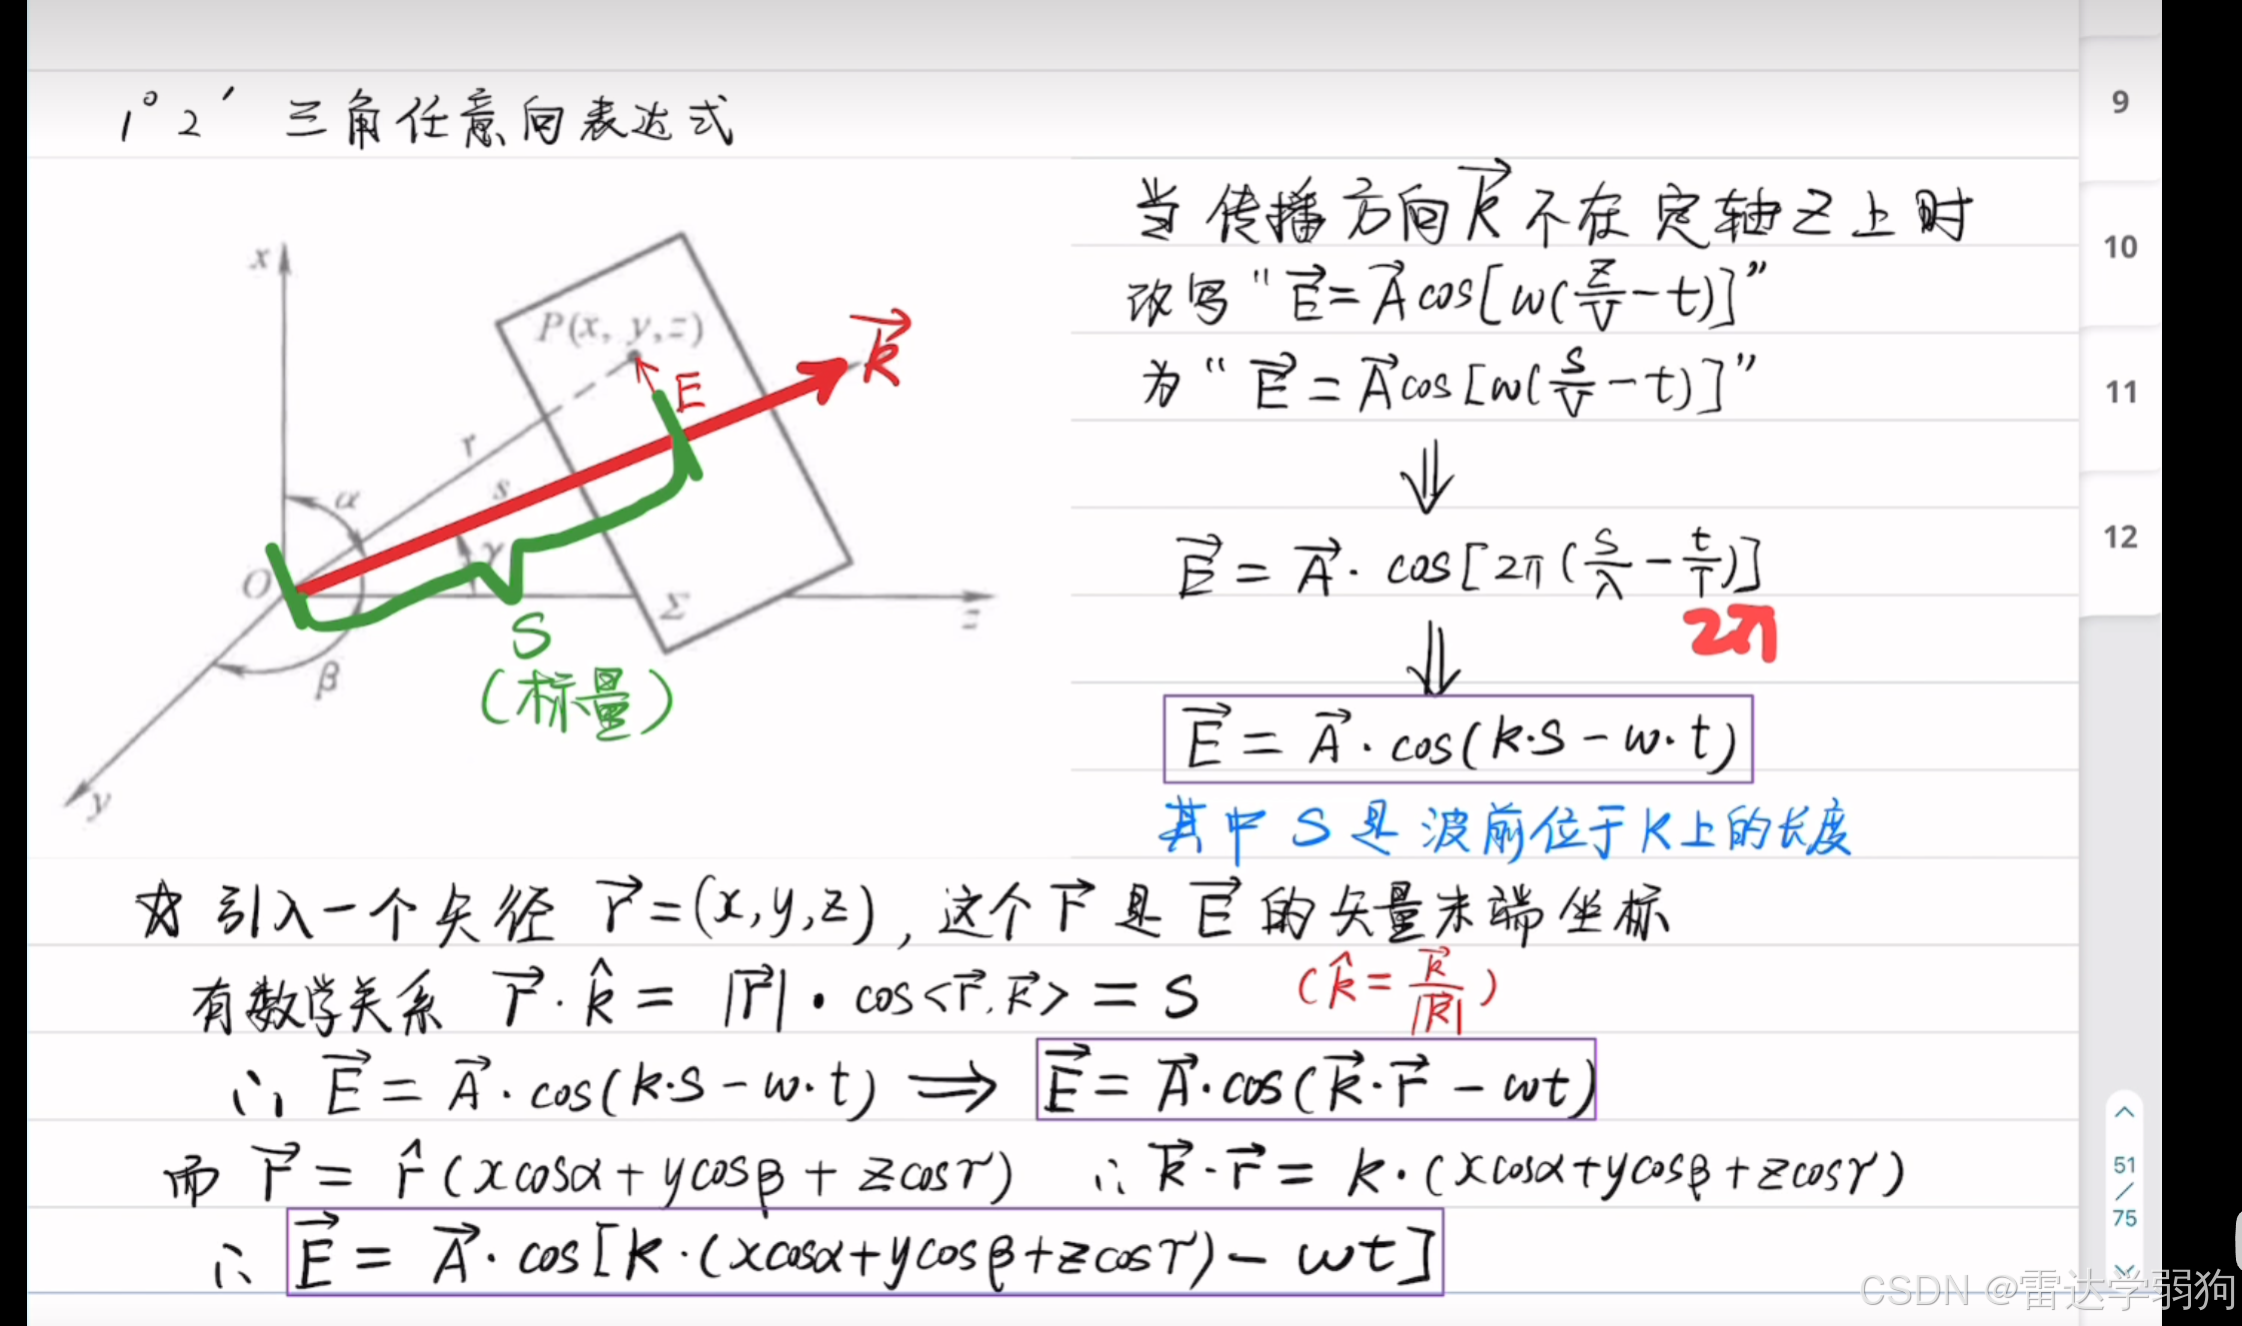 1° 2′ 三角任意向表达式
x
P(x, y, z)
k⃗
E
r
s
α
γ
O
Σ
z
β
S
(标量)
y
当传播方向k⃗不在定轴Z上时
改写“E⃗=A⃗cos[w(z/V-t)]”
为“E⃗=A⃗cos[w(s/V-t)]”
⇓
E⃗=A⃗·cos[2π(s/λ-t/T)]
2π
⇓
E⃗=A⃗·cos(k·s-w·t)
其中S是波前位于K上的长度
☆引入一个矢径r⃗=(x,y,z),这个r⃗是E⃗的矢量末端坐标
有数学关系 r⃗·k̂=|r⃗|·cos<r⃗,k⃗>=S (k̂=k⃗/|k⃗|)
∴E⃗=A⃗·cos(k·s-w·t)⟹E⃗=A⃗·cos(k⃗·r⃗-wt)
而r⃗=r̂(xcosα+ycosβ+zcosγ) ∴k⃗·r⃗=k·(xcosα+ycosβ+zcosγ)
∴E⃗=A⃗·cos[k·(xcosα+ycosβ+zcosγ)-wt]
9
10
11
12
51
/
75
CSDN @雷达学弱狗